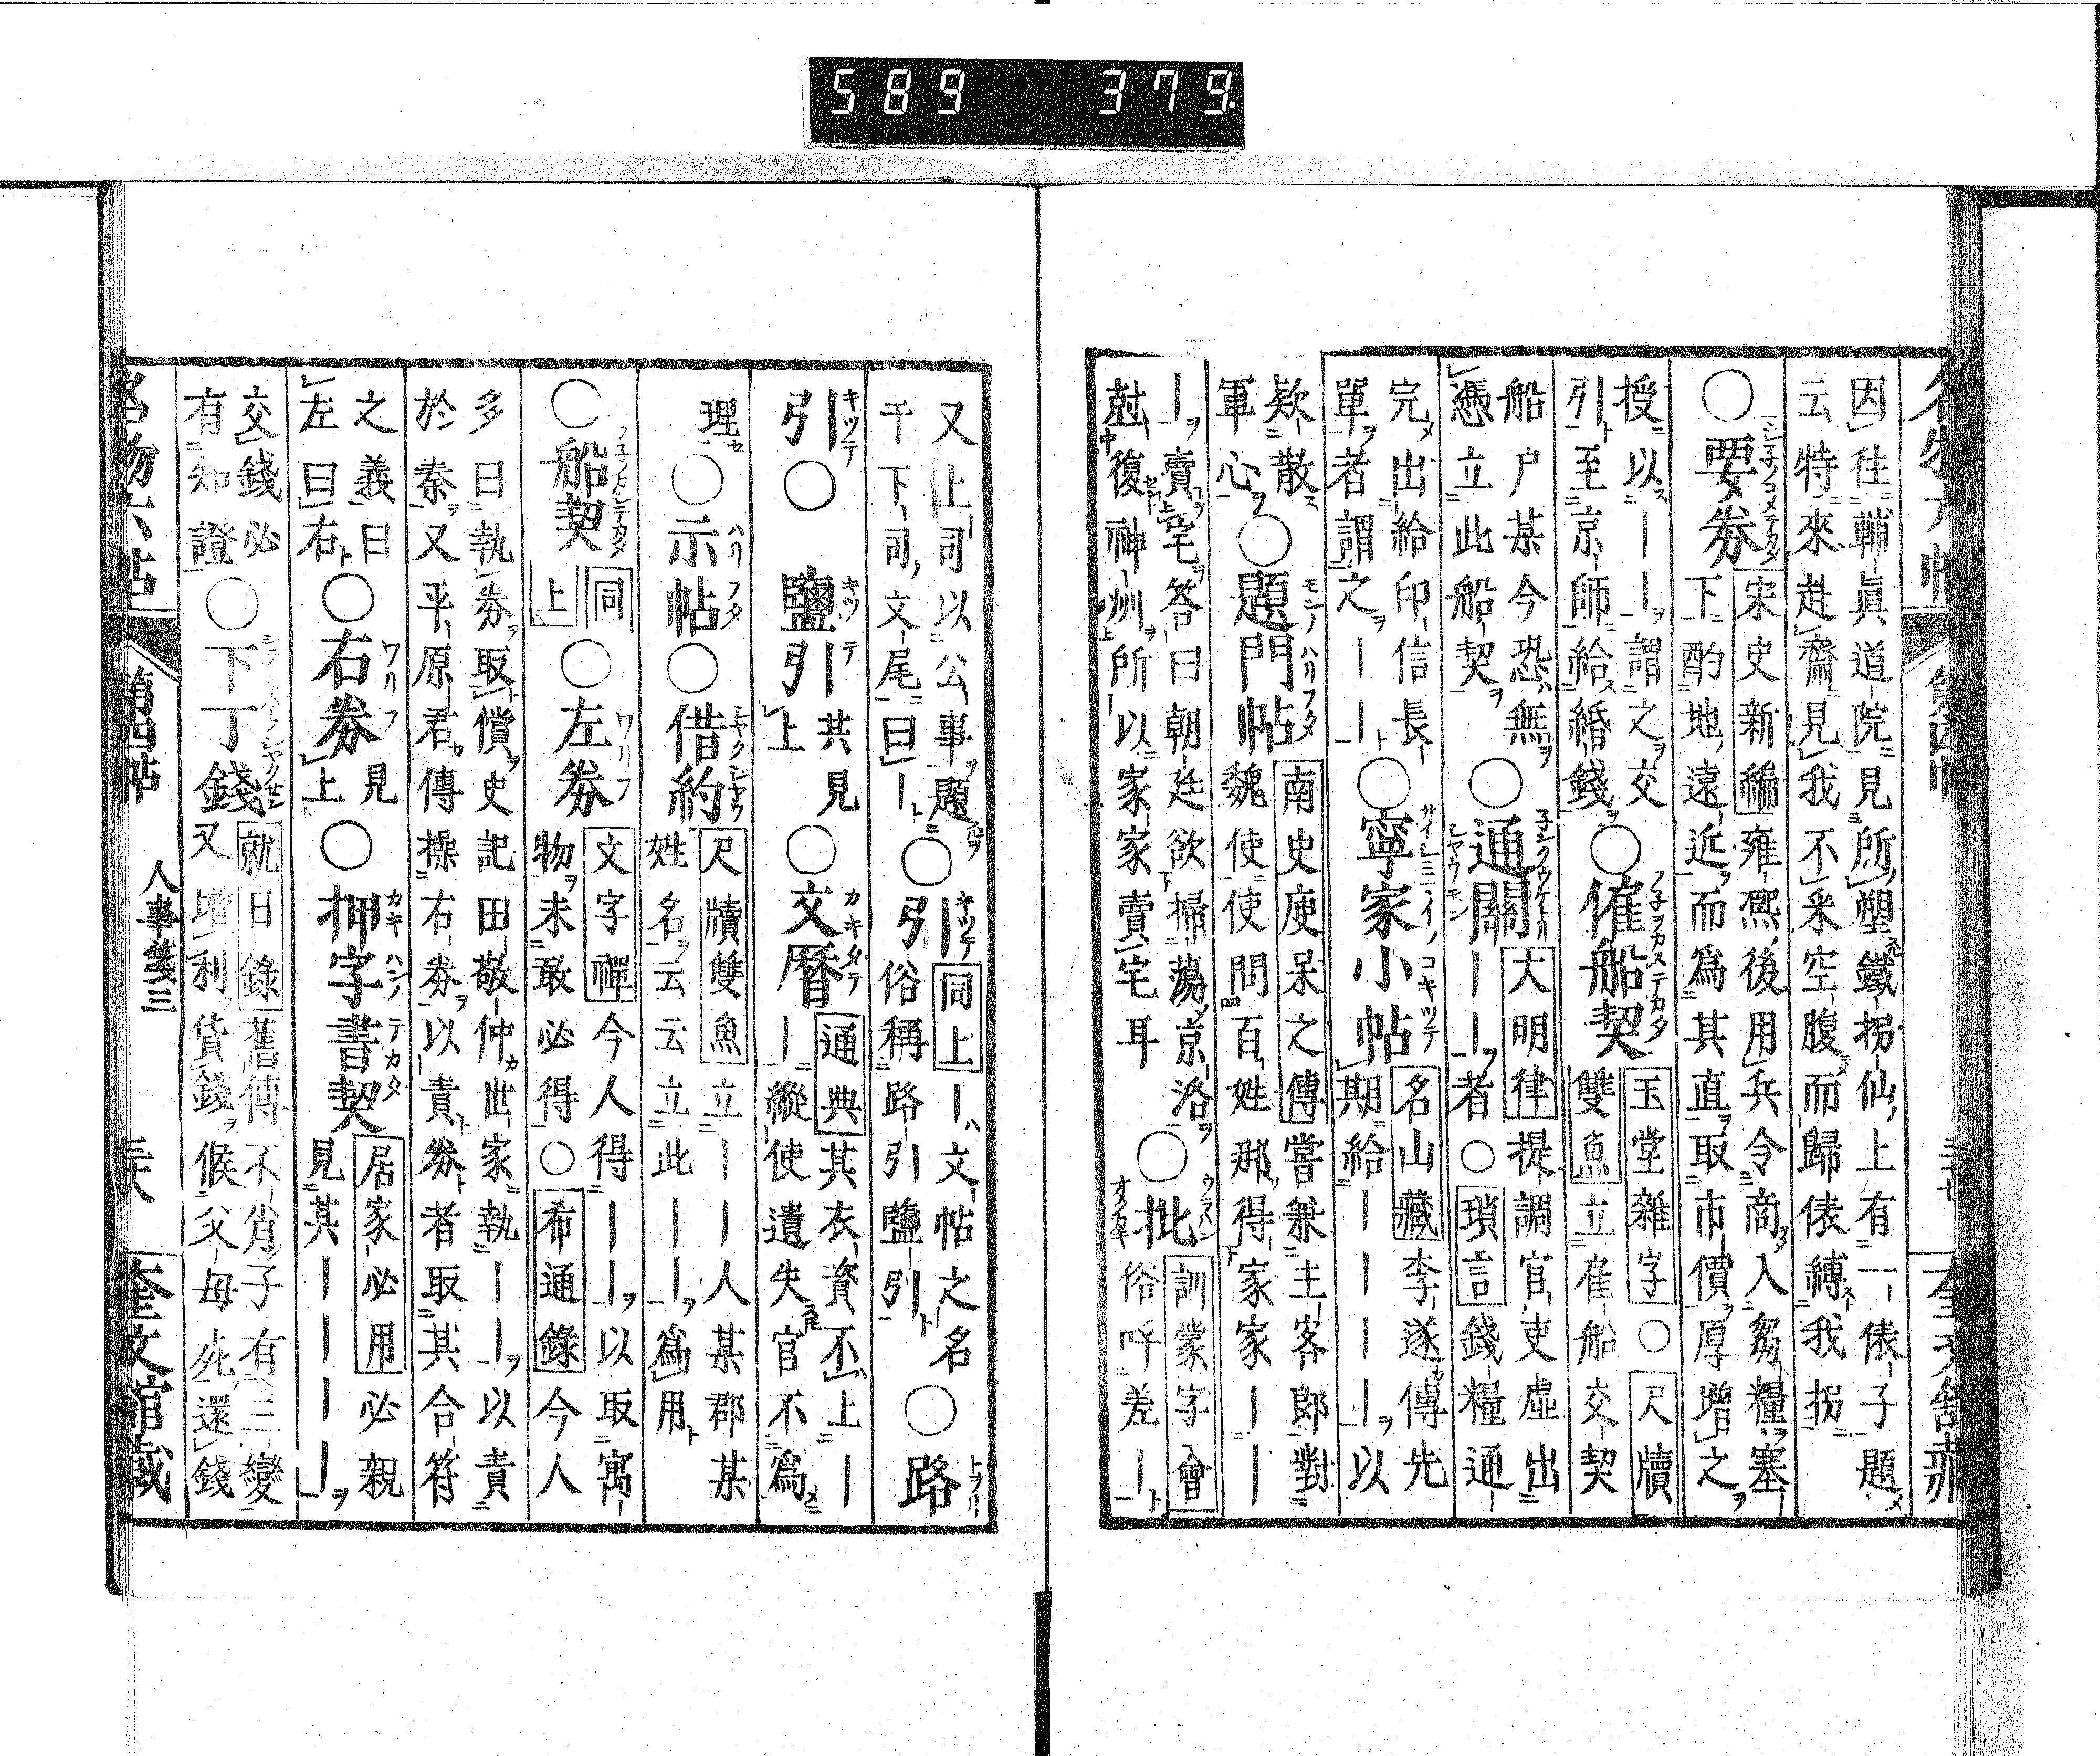 589 379
因往輔眞道院見所塑鐵拐仙上有一俵子題
云特來赴齋見我不采空腹而歸俵縛我拐
○要券 シネノコメテカタ 宋史新編 雍熙後用兵令商人芻糧塞
下酌地遠近而爲其直取市價厚增之
授以｜｜謂之交
引至京師給緡錢○雇船契 フ子ヲカステカタ 玉堂雜字○尺牘
雙魚立雇船交契
船户某今恐無
憑立此船契○通關 大明律 提調官吏虛出
｜｜者○瑣言 錢糧通
完出給印信長
單者謂之｜｜○寧家小帖 名山藏 李遂傳先
期給｜｜｜｜以
欵散
軍心○題門帖 モンノハリフタ 南史庾杲之傳 嘗兼主客郎對
魏使使問百姓那得家家｜｜
｜賣宅答曰朝廷欲掃蕩京洛
尅復神州所以家家賣宅耳○批 訓蒙字會
俗呼差｜
又上司以公事題
干下司文尾曰｜○引 キツテ 同上 ｜文帖之名
俗稱路引鹽引○路 トヲリ
引 キツテ ○鹽引 キツテ 其見上○文曆 カキタテ 通典 其衣資不上｜
｜縱使遺失官不爲
理○示帖 ハリフタ ○借約 シヤクジヤウ 尺牘雙魚 立｜｜人某郡某
姓名云云立此｜｜爲用
○船契 同上○左券 ワリフ 文字禪 今人得｜｜以取寓
物未敢必得○希通錄 今人
多曰執券取償史記田敬仲世家執｜｜以責
於秦又平原君傳操右券以責券者取其合符
之義曰
左曰右○右券 ワリフ 見上○押字書契 カキハンノテカタ 居家必用 必親
見其｜｜｜｜
交錢必
有知證○下丁錢 就日錄 舊傳不肖子有三變
又增利貸錢候父母死還錢
名物六帖 第四帖 人事箋三 奎文館藏